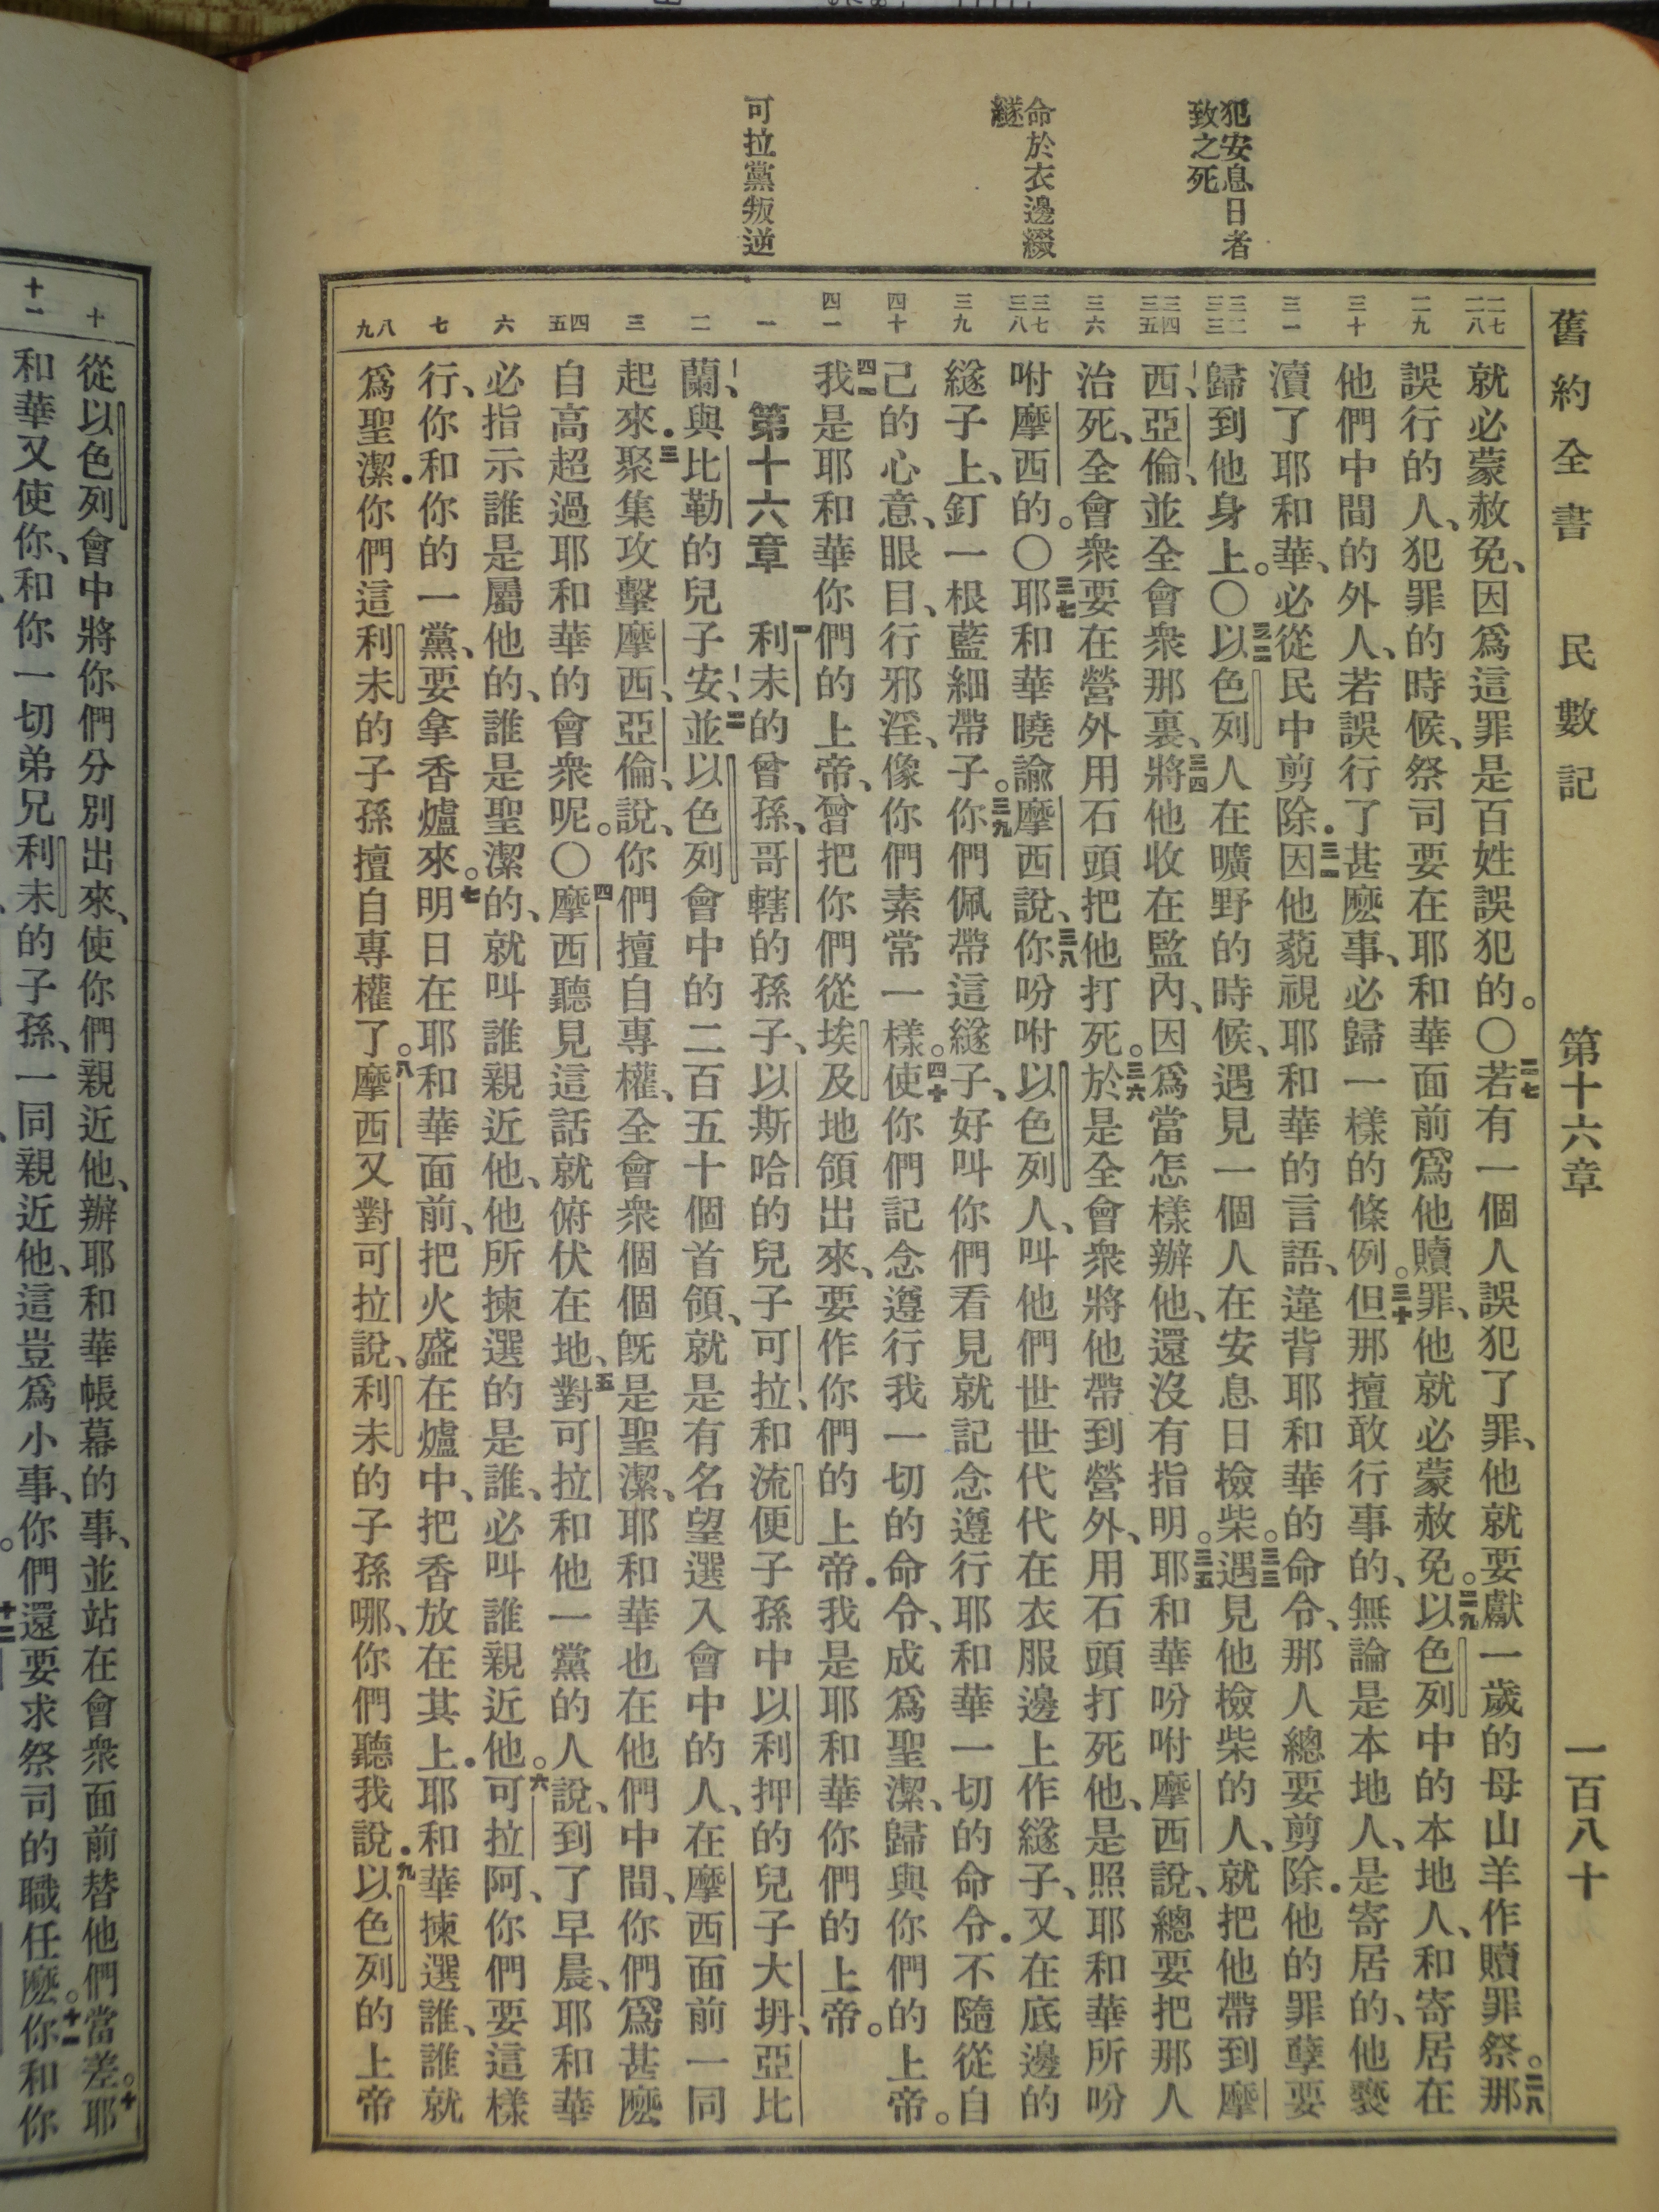 舊約全書 民數記 第十六章 一百八十
犯安息日者
致之死
命於衣邊綴
繸
可拉黨叛逆
二七 二八
二九
三十
三一
三二 三三
三四 三五
三六
三七 三八
三九
四十
四一
一
二
三
四 五
六
七
八 九
就必蒙赦免、因爲這罪是百姓誤犯的。〇二七若有一個人誤犯了罪、他就要獻一歲的母山羊作贖罪祭。二八那
誤行的人、犯罪的時候、祭司要在耶和華面前爲他贖罪、他就必蒙赦免。二九以色列中的本地人、和寄居在
他們中間的外人、若誤行了甚麽事、必歸一樣的條例。三十但那擅敢行事的、無論是本地人、是寄居的、他褻
瀆了耶和華、必從民中剪除．三一因他藐視耶和華的言語、違背耶和華的命令、那人總要剪除．他的罪孽要
歸到他身上。〇三二以色列人在曠野的時候、遇見一個人在安息日檢柴。三三遇見他檢柴的人、就把他帶到摩
西、亞倫、並全會衆那裏、三四將他收在監內、因爲當怎樣辦他、還沒有指明。三五耶和華吩咐摩西說、總要把那人
治死、全會衆要在營外用石頭把他打死。三六於是全會衆將他帶到營外、用石頭打死他、是照耶和華所吩
咐摩西的。〇三七耶和華曉諭摩西說、三八你吩咐以色列人、叫他們世世代代在衣服邊上作繸子、又在底邊的
繸子上、釘一根藍細帶子。三九你們佩帶這繸子、好叫你們看見就記念遵行耶和華一切的命令．不隨從自
己的心意、眼目、行邪淫、像你們素常一樣。四十使你們記念遵行我一切的命令、成爲聖潔、歸與你們的上帝。
四一我是耶和華你們的上帝、曾把你們從埃及地領出來、要作你們的上帝．我是耶和華你們的上帝。
第十六章 一利未的曾孫、哥轄的孫子、以斯哈的兒子可拉、和流便子孫中以利押的兒子大坍、亞比
蘭、與比勒的兒子安、二並以色列會中的二百五十個首領、就是有名望選入會中的人、在摩西面前一同
起來．三聚集攻擊摩西、亞倫、說、你們擅自專權、全會衆個個旣是聖潔、耶和華也在他們中間、你們爲甚麽
自高超過耶和華的會衆呢。〇四摩西聽見這話就俯伏在地、五對可拉和他一黨的人說、到了早晨、耶和華
必指示誰是屬他的、誰是聖潔的、就叫誰親近他、他所揀選的是誰、必叫誰親近他。六可拉阿、你們要這樣
行、你和你的一黨、要拿香爐來。七明日在耶和華面前、把火盛在爐中、把香放在其上．耶和華揀選誰、誰就
爲聖潔．你們這利未的子孫擅自專權了。八摩西又對可拉說、利未的子孫哪、你們聽我說．九以色列的上帝
十
十一
從以色列會中將你們分別出來、使你們親近他、辦耶和華帳幕的事、並站在會衆面前替他們當差。十耶
和華又使你、和你一切弟兄利未的子孫、一同親近他、這豈爲小事、你們還要求祭司的職任麽。十一你和你